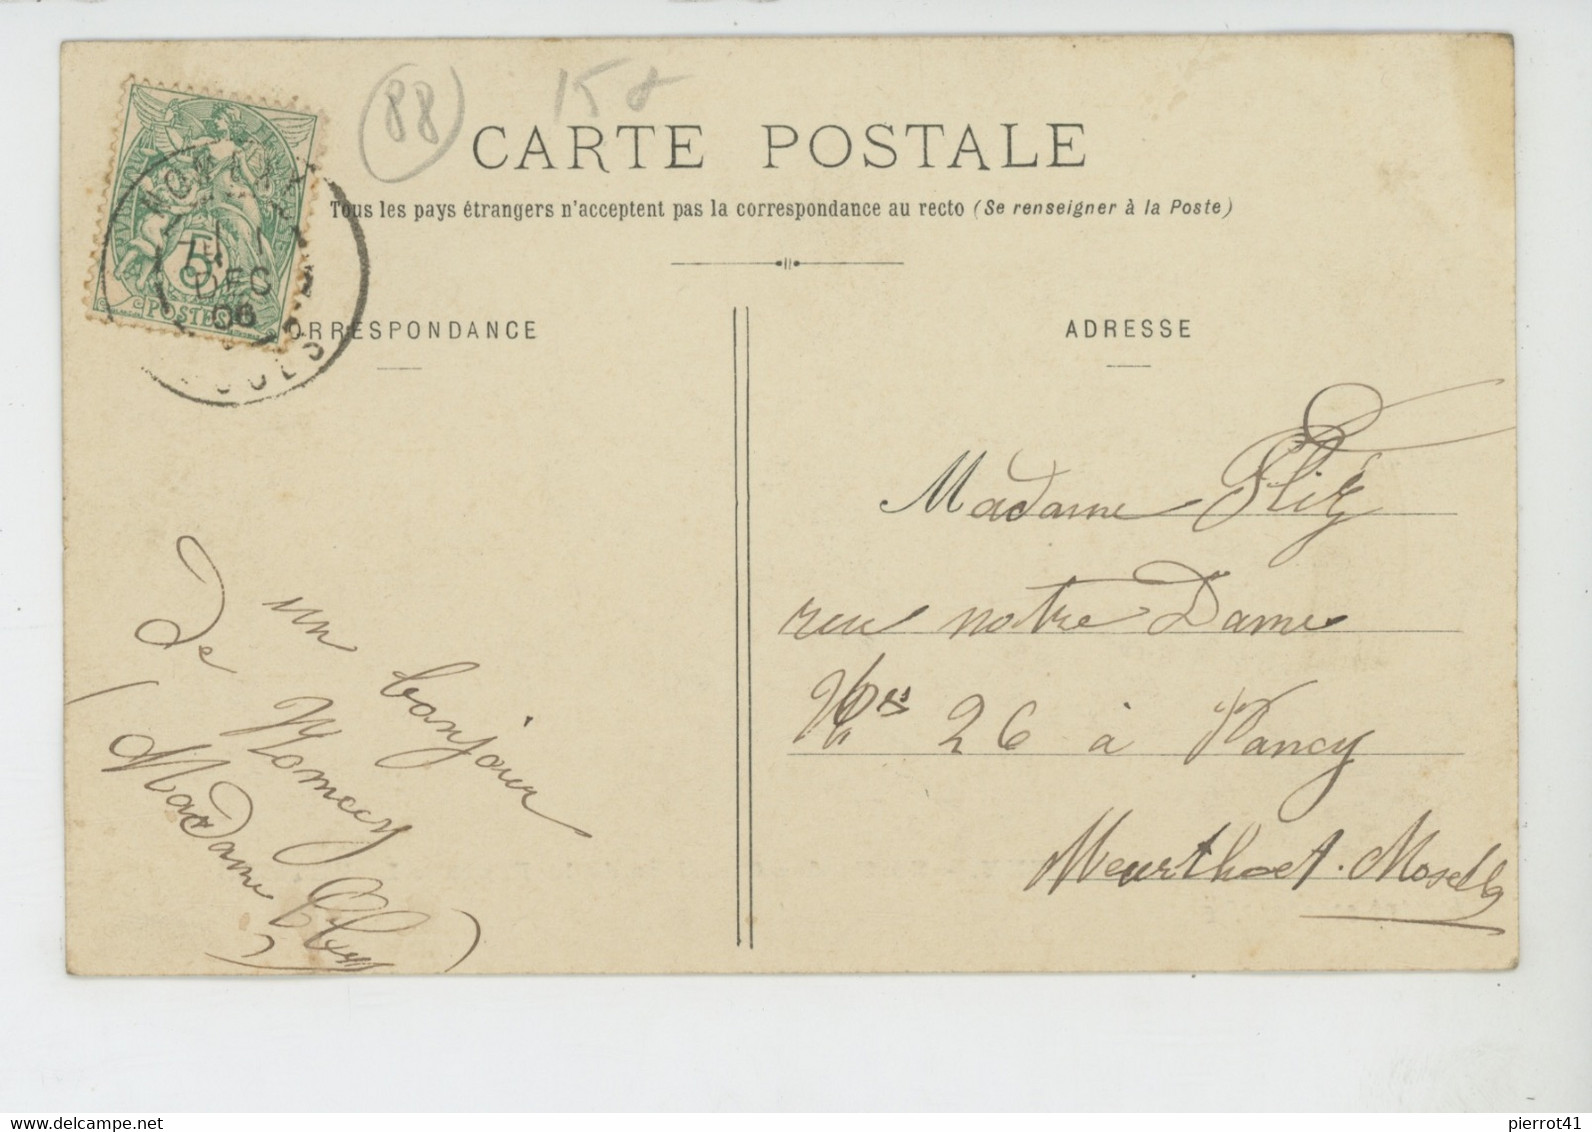 88
CARTE POSTALE
Tous les pays étrangers n'acceptent pas la correspondance au recto (Se renseigner à la Poste)
DEC
06
5
POSTES
ORRESPONDANCE
ADRESSE
Madame
rue notre Dame
26 à Nancy
Meurthe et. Moselle
un bonjour
De Nomecy
Madame
pierrot41